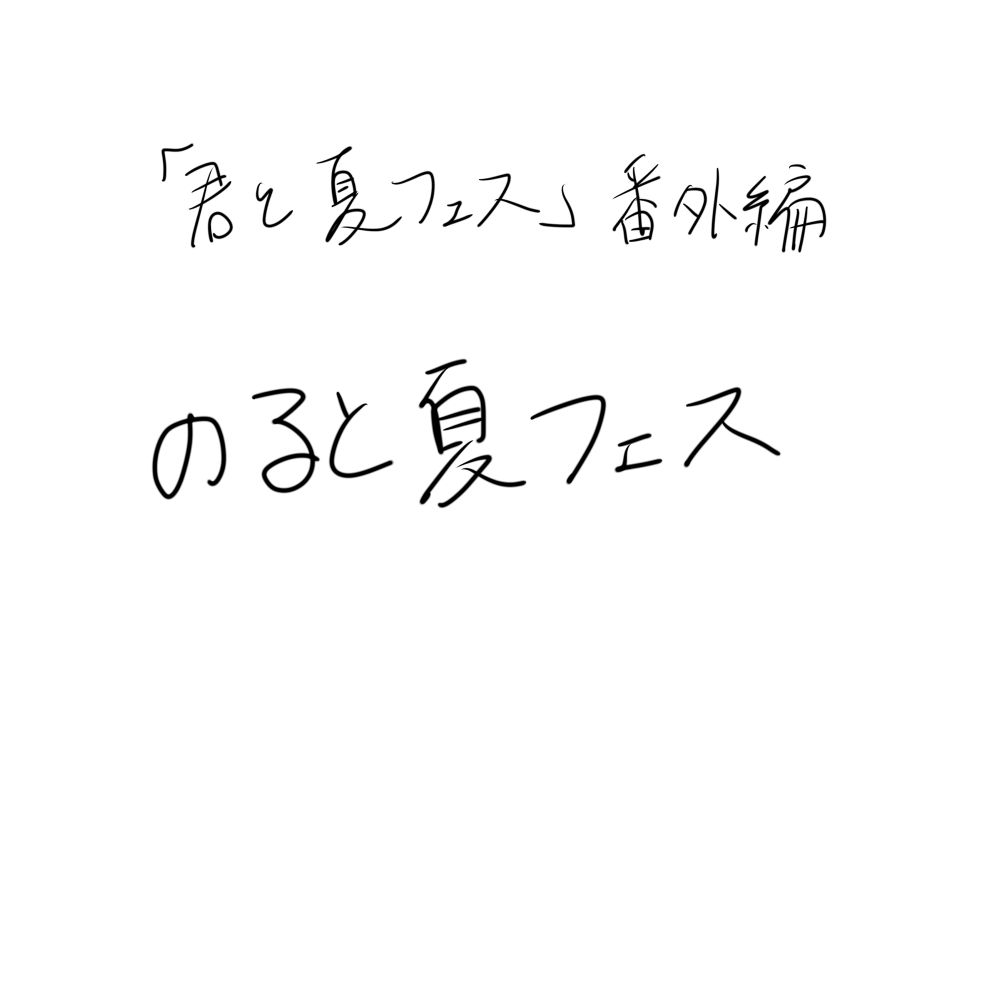 「君と夏フェス」番外編
のると夏フェス